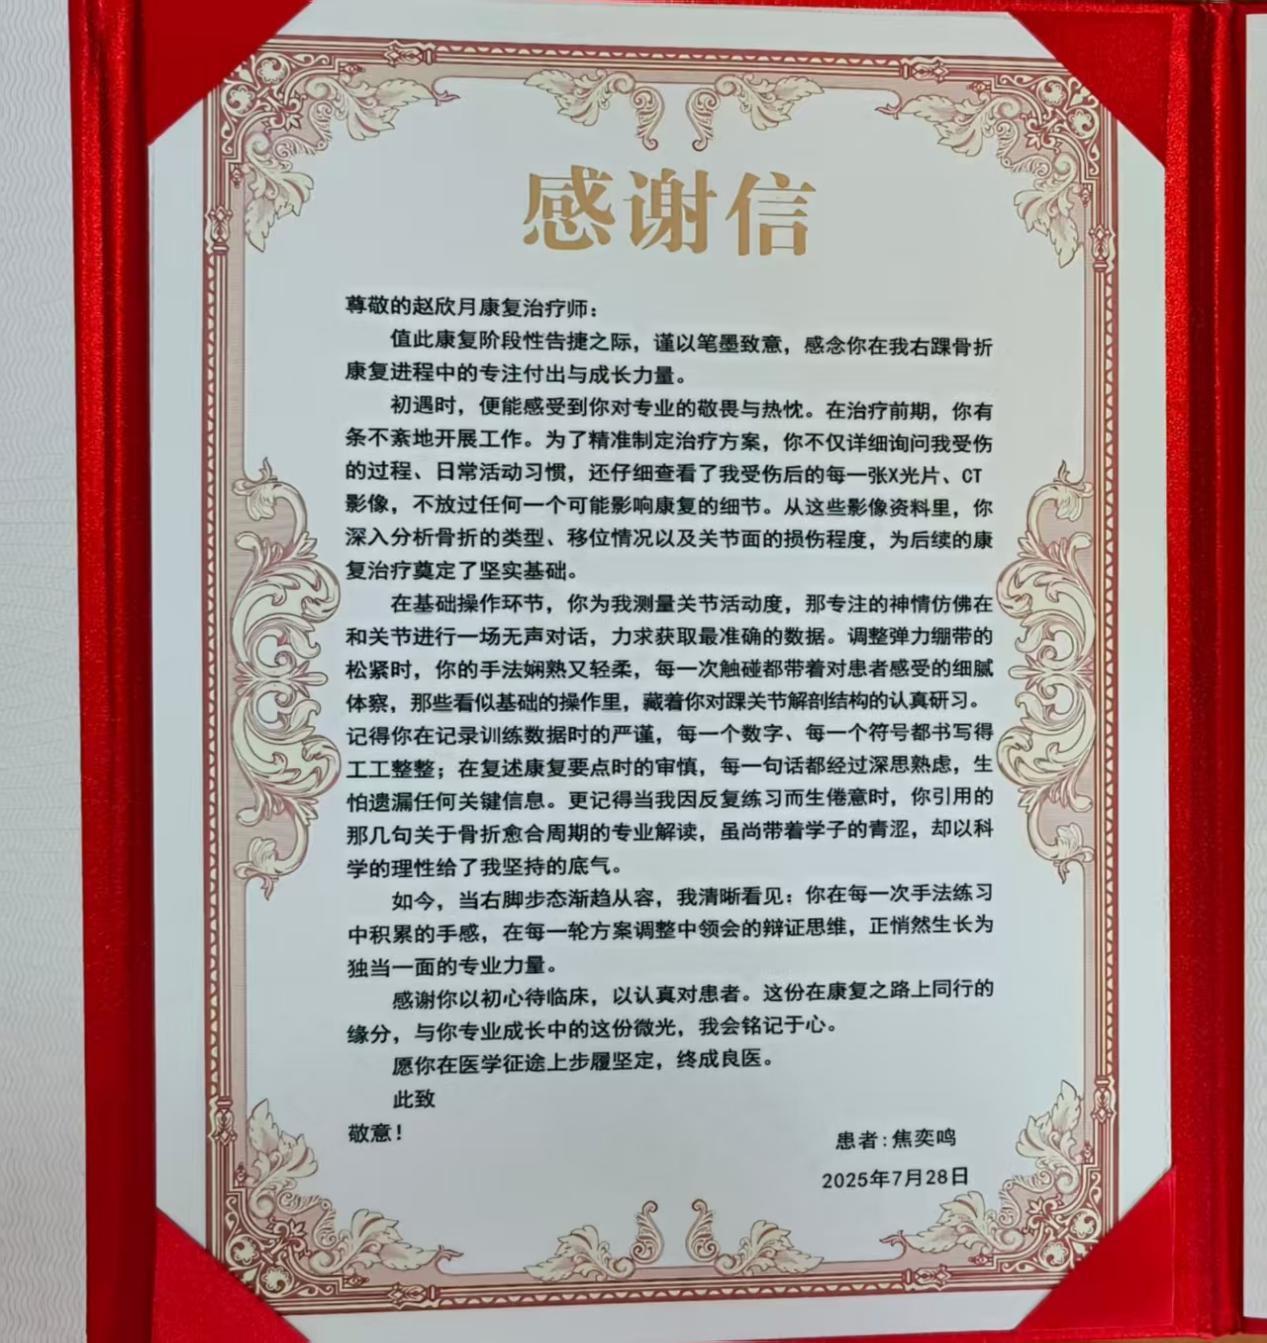 感谢信
尊敬的赵欣月康复治疗师：
值此康复阶段性告捷之际，谨以笔墨致意，感念你在我右踝骨折
康复进程中的专注付出与成长力量。
初遇时，便能感受到你对专业的敬畏与热忱。在治疗前期，你有
条不紊地开展工作。为了精准制定治疗方案，你不仅详细询问我受伤
的过程、日常活动习惯，还仔细查看了我受伤后的每一张X光片、CT
影像，不放过任何一个可能影响康复的细节。从这些影像资料里，你
深入分析骨折的类型、移位情况以及关节面的损伤程度，为后续的康
复治疗奠定了坚实基础。
在基础操作环节，你为我测量关节活动度，那专注的神情仿佛在
和关节进行一场无声对话，力求获取最准确的数据。调整弹力绷带的
松紧时，你的手法娴熟又轻柔，每一次触碰都带着对患者感受的细腻
体察，那些看似基础的操作里，藏着你对踝关节解剖结构的认真研习。
记得你在记录训练数据时的严谨，每一个数字、每一个符号都书写得
工工整整；在复述康复要点时的审慎，每一句话都经过深思熟虑，生
怕遗漏任何关键信息。更记得当我因反复练习而生倦意时，你引用的
那几句关于骨折愈合周期的专业解读，虽尚带着学子的青涩，却以科
学的理性给了我坚持的底气。
如今，当右脚步态渐趋从容，我清晰看见：你在每一次手法练习
中积累的手感，在每一轮方案调整中领会的辩证思维，正悄然生长为
独当一面的专业力量。
感谢你以初心待临床，以认真对患者。这份在康复之路上同行的
缘分，与你专业成长中的这份微光，我会铭记于心。
愿你在医学征途上步履坚定，终成良医。
此致
敬意！
患者：焦奕鸣
2025年7月28日